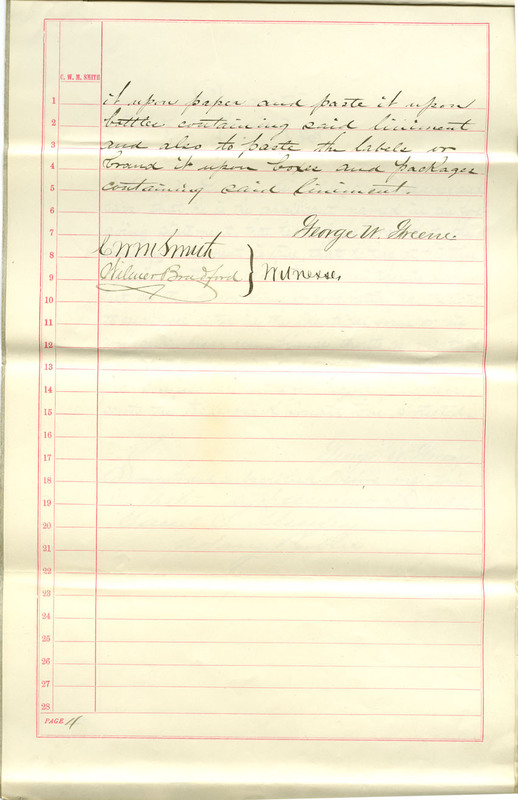 C. W. M. SMITH
1 it upon paper and paste it upon
2 bottles containing said liniment
3 and also to paste the labels or
4 brand it upon boxes and packages
5 containing said liniment.
6
7 George W. Greene.
8 C W M Smith
9 Wilmer Bradford } Witnesses
10
11
12
13
14
15
16
17
18
19
20
21
22
23
24
25
26
27
28
PAGE 4